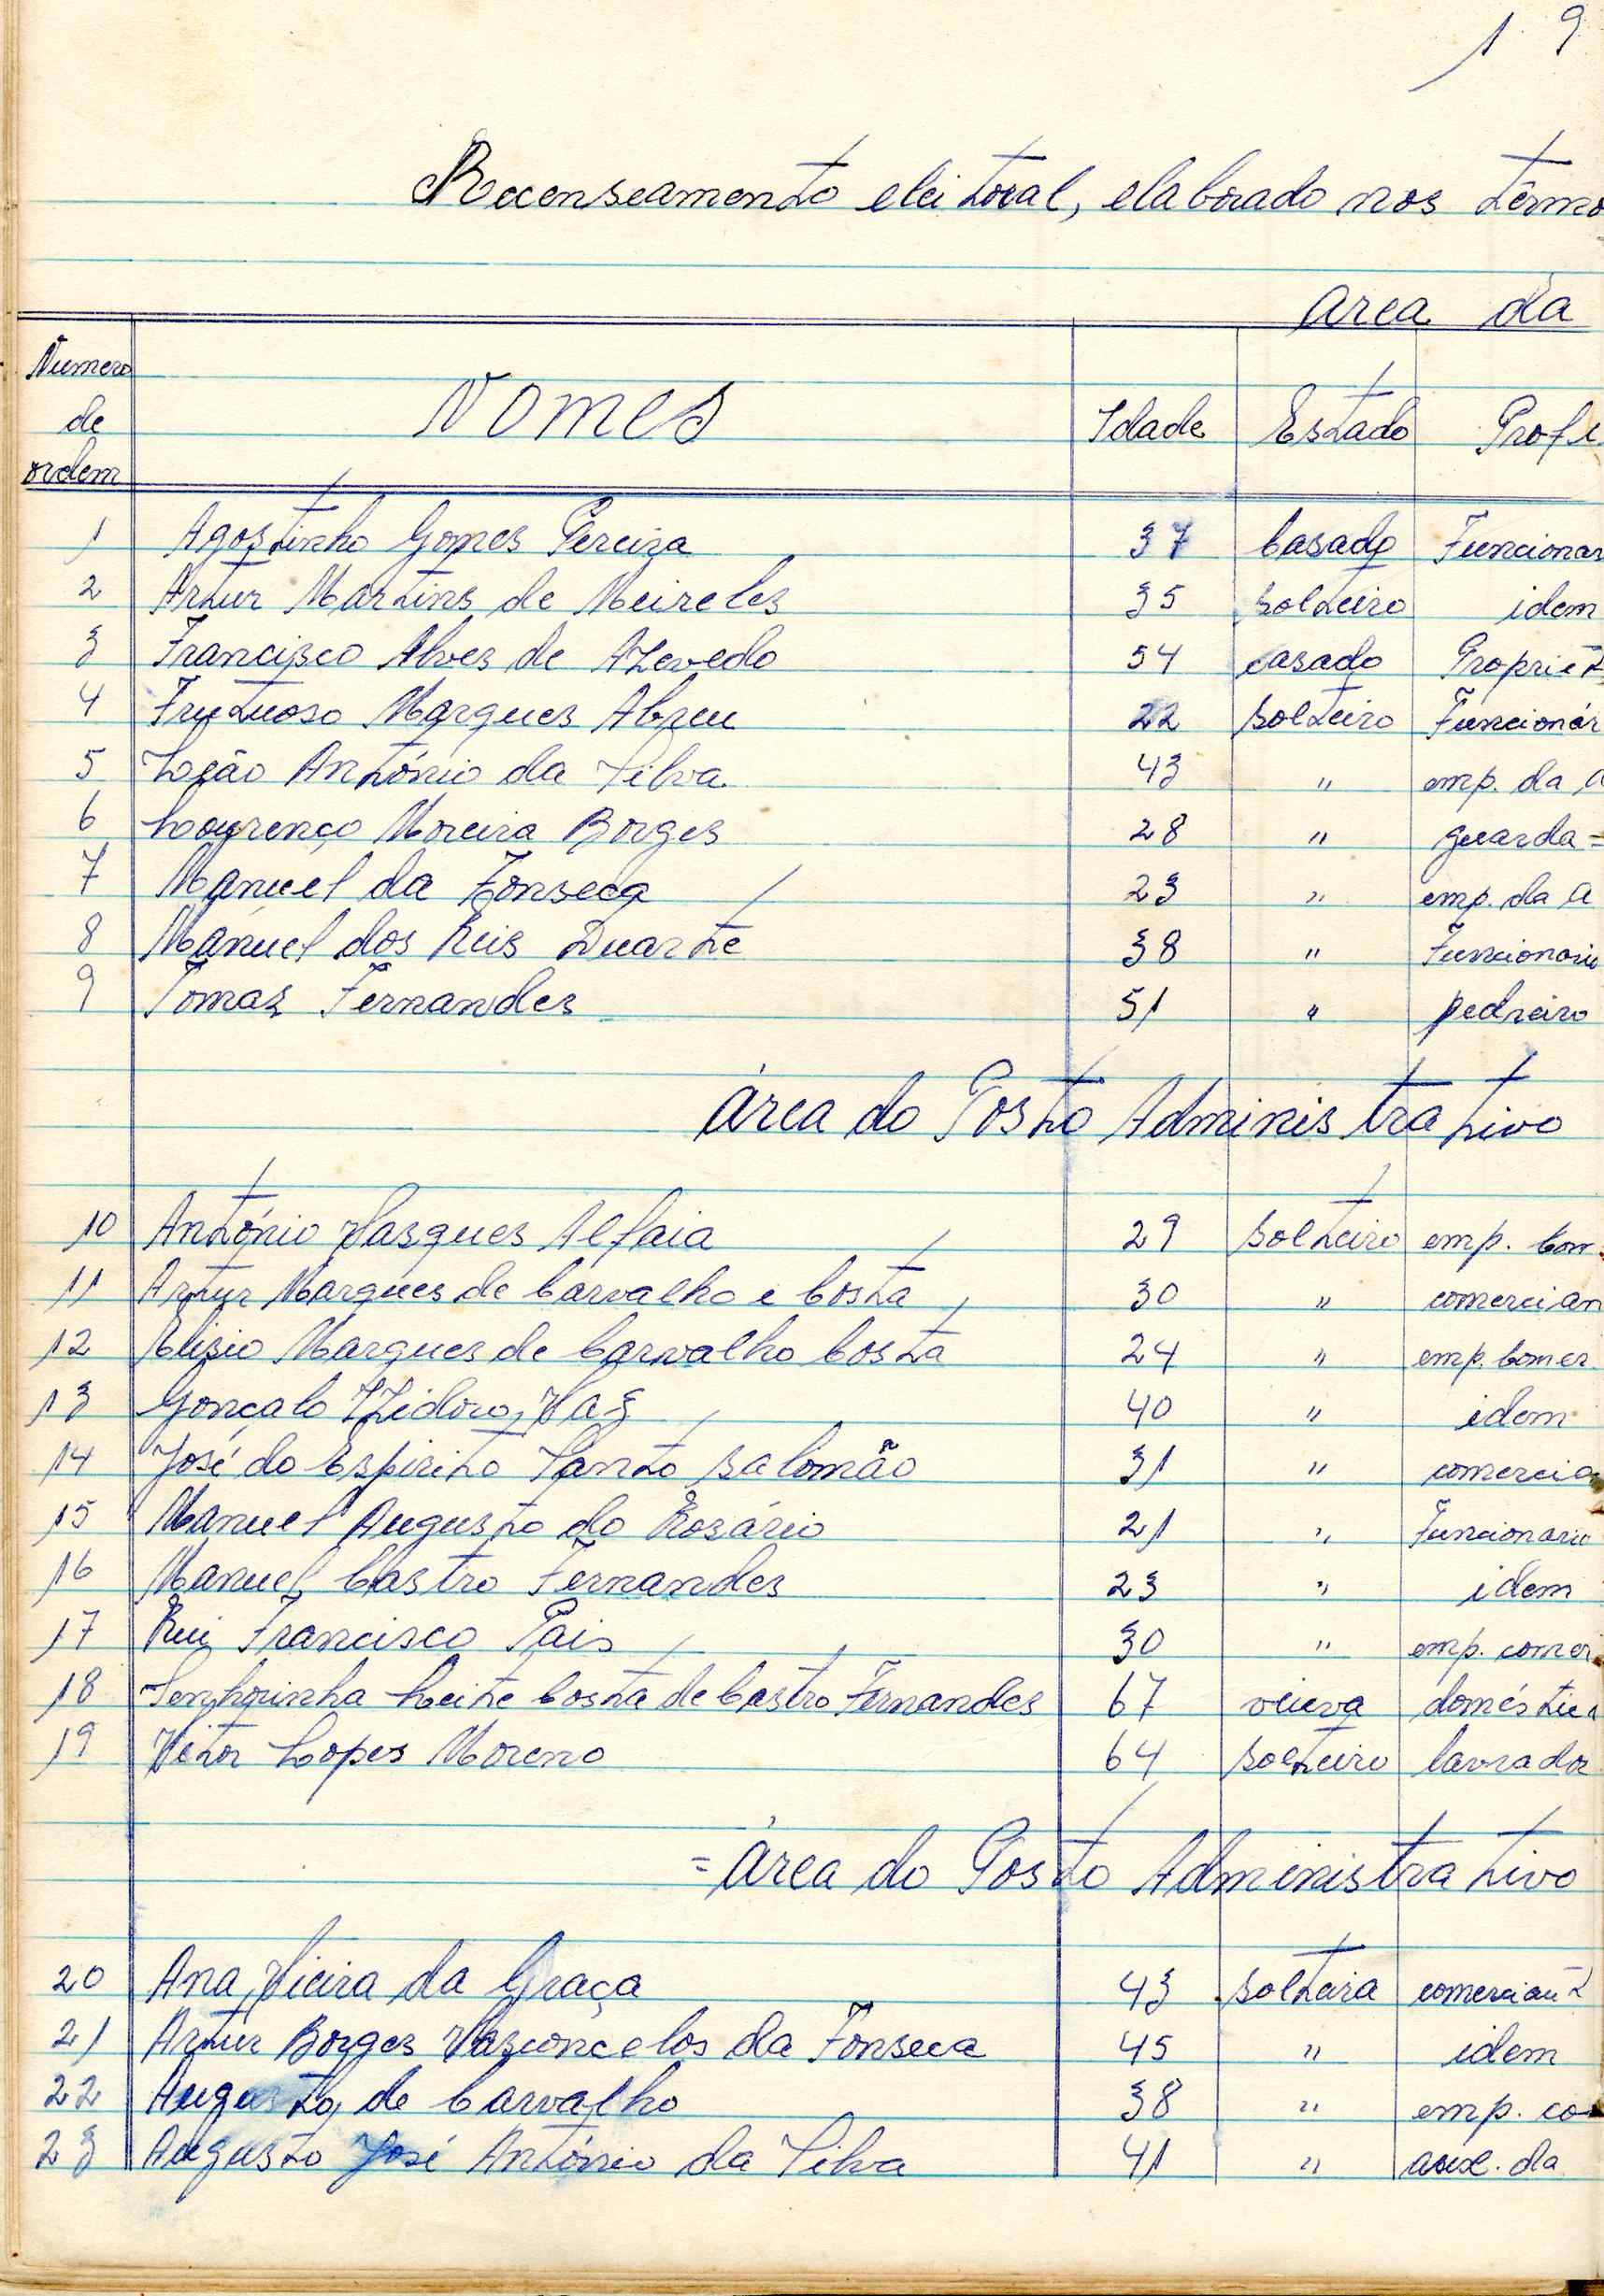 19
Recenseamento eleitoral, elaborado nos têrmo
Area da
Numero de ordem Nomes Idade Estado Profi
1 Agostinho Gomes Pereira 37 Casado Funcionar
2 Artur Martins de Meireles 35 solteiro idem
3 Francisco Alves de Azevedo 54 casado Propriet
4 Frutuoso Marques Abreu 22 solteiro Funcionár
5 António da Silva 43 " emp. da a
6 Lourenço Moreira Borges 28 " guarda=
7 Manuel da Fonseca 23 " emp. da A
8 Manuel dos Reis Duarte 38 " Funcionario
9 Tomaz Fernandes 51 " pedreiro
Área do Posto Administrativo
10 António Vasques Alfaia 29 solteiro emp. Com.
11 Artur Marques de Carvalho e Costa 30 " comercian
12 Elisio Marques de Carvalho Costa 24 " emp. Comer
13 Gonçalo Izidoro Vaz 40 " idem
14 José do Espirito Santo Salomão 31 " comercia
15 Manuel Augusto do Rosário 21 " Funcionario
16 Manuel Castro Fernandes 23 " idem
17 Rui Francisco Pais 30 " emp. comer.
18 Senhorinha Leite Costa de Castro Fernandes 67 viuva doméstica
19 Vitor Lopes Moreno 64 solteiro lavrador
=Área do Posto Administrativo
20 Ana Vieira da Graça 43 solteira comerciant
21 Artur Borges Vasconcelos da Fonseca 45 " idem
22 Augusto de Carvalho 38 " emp. co
23 Augusto José António da Silva 41 " auxl. da